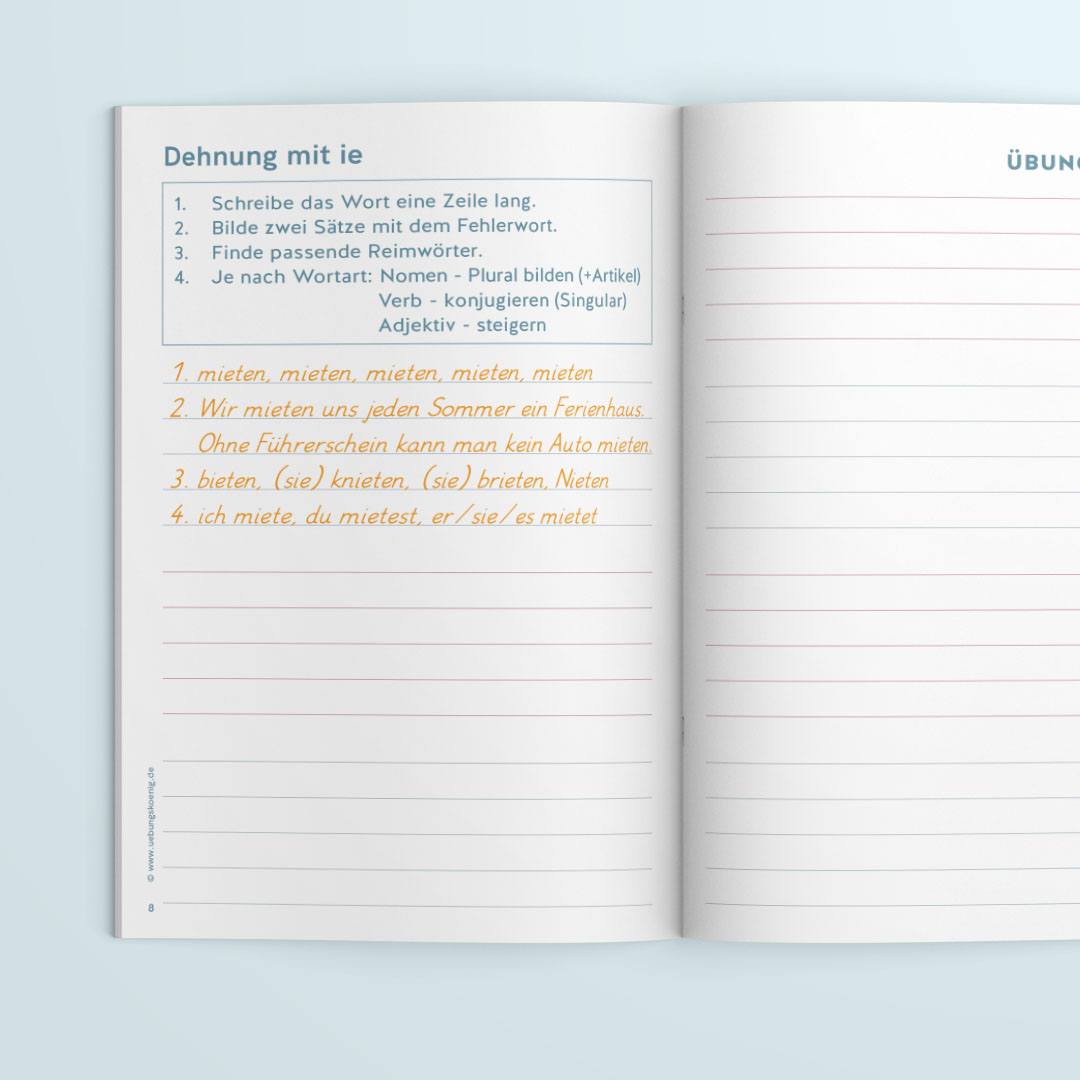 Dehnung mit ie
1. Schreibe das Wort eine Zeile lang.
2. Bilde zwei Sätze mit dem Fehlerwort.
3. Finde passende Reimwörter.
4. Je nach Wortart: Nomen - Plural bilden (+Artikel)
Verb - konjugieren (Singular)
Adjektiv - steigern
1. mieten, mieten, mieten, mieten, mieten
2. Wir mieten uns jeden Sommer ein Ferienhaus.
Ohne Führerschein kann man kein Auto mieten.
3. bieten, (sie) knieten, (sie) brieten, Nieten
4. ich miete, du mietest, er/sie/es mietet
© www.uebungskoenig.de
8
ÜBUNG